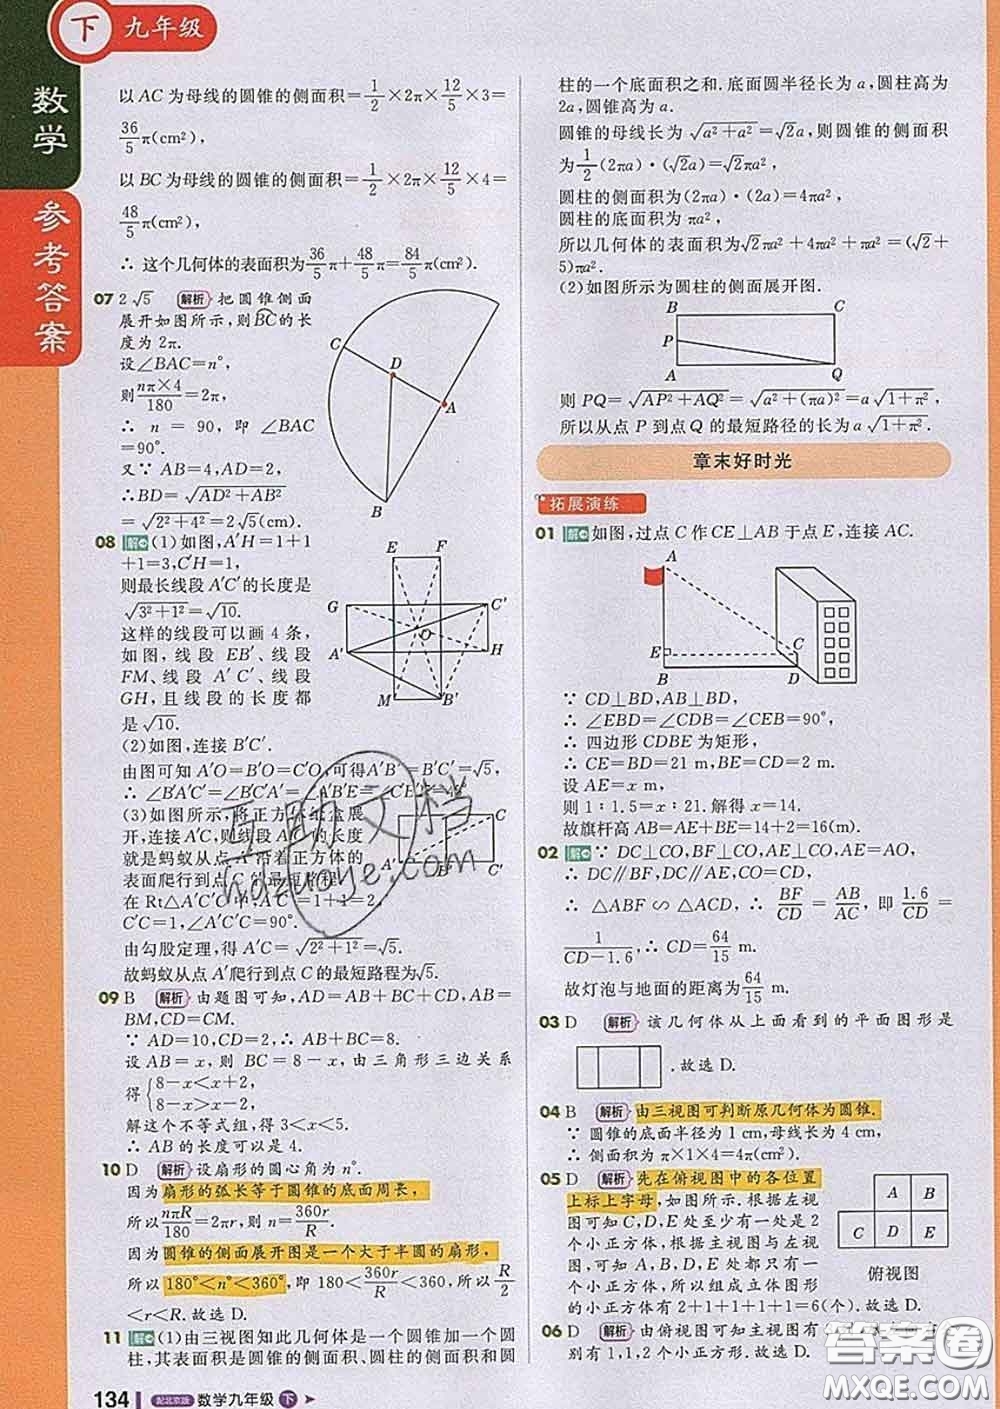 下 九年级
数学
参考答案
以AC为母线的圆锥的侧面积=1/2×2π×12/5×3=
36/5π(cm²),
以BC为母线的圆锥的侧面积=1/2×2π×12/5×4=
48/5π(cm²),
∴ 这个几何体的表面积为36/5π+48/5π=84/5π(cm²).
07 2√5 解析 把圆锥侧面
展开如图所示,则BC的长
度为2π.
设∠BAC=n°,
则nπ×4/180=2π,
∴ n=90,即∠BAC
=90°.
又∵ AB=4,AD=2,
∴BD=√(AD²+AB²)
=√(2²+4²)=2√5(cm).
C
D
A
B
08 解 (1)如图,A′H=1+1
+1=3,C′H=1,
则最长线段A′C′的长度是
√(3²+1²)=√10.
这样的线段可以画4条,
如图,线段EB′、线段
FM、线段A′C′、线段
GH,且线段的长度都
是√10.
E F
G C′
O
A′ H
M B′
(2)如图,连接B′C′.
由图可知A′O=B′O=C′O,可得A′B′=B′C′=√5,
(3)如图所示,将正方体纸盒展
开,连接A′C,则线段A′C的长度
就是蚂蚁从点A′沿着正方体的
表面爬行到点C的最短路程.
在Rt△A′C′C中,A′C′=1+1=2,
C′C=1,∠A′C′C=90°.
由勾股定理,得A′C=√(2²+1²)=√5.
故蚂蚁从点A′爬行到点C的最短路程为√5.
C
A′ C′
09 B 解析 由题图可知,AD=AB+BC+CD,AB=
BM,CD=CM.
∵ AD=10,CD=2,∴ AB+BC=8.
设AB=x,则BC=8-x,由三角形三边关系
得{8-x<x+2,
8-x>x-2,
解这个不等式组,得3<x<5.
∴ AB的长度可以是4.
10 D 解析 设扇形的圆心角为n°.
因为扇形的弧长等于圆锥的底面周长,
所以nπR/180=2πr,则n=360r/R.
因为圆锥的侧面展开图是一个大于半圆的扇形,
所以180°<n°<360°,即180<360r/R<360,所以R/2
<r<R.故选D.
11 解 (1)由三视图知此几何体是一个圆锥加一个圆
柱,其表面积是圆锥的侧面积、圆柱的侧面积和圆
134 配北京版 数学九年级 下
柱的一个底面积之和.底面圆半径长为a,圆柱高为
2a,圆锥高为a.
圆锥的母线长为√(a²+a²)=√2a,则圆锥的侧面积
为1/2(2πa)·(√2a)=√2πa²,
圆柱的侧面积为(2πa)·(2a)=4πa²,
圆柱的底面积为πa²,
所以几何体的表面积为√2πa²+4πa²+πa²=(√2+
5)πa².
(2)如图所示为圆柱的侧面展开图.
B C
P
A Q
则PQ=√(AP²+AQ²)=√(a²+(πa)²)=a√(1+π²),
所以从点P到点Q的最短路径的长为a√(1+π²).
章末好时光
拓展演练
01 解 如图,过点C作CE⊥AB于点E,连接AC.
A
E C
B D
∵ CD⊥BD,AB⊥BD,
∴ ∠EBD=∠CDB=∠CEB=90°,
∴ 四边形CDBE为矩形,
∴ CE=BD=21 m,BE=CD=2 m.
设AE=x m,
则1∶1.5=x∶21.解得x=14.
故旗杆高AB=AE+BE=14+2=16(m).
02 解 ∵ DC⊥CO,BF⊥CO,AE⊥CO,AE=AO,
∴ DC∥BF,DC=AC,
∴ △ABF∽△ACD,∴ BF/CD=AB/AC,即1.6/CD=
1/(CD-1.6),∴ CD=64/15 m.
故灯泡与地面的距离为64/15 m.
03 D 解析 该几何体从上面看到的平面图形是
.故选D.
04 B 解析 由三视图可判断原几何体为圆锥.
∵ 圆锥的底面半径为1 cm,母线长为4 cm,
∴ 侧面积为π×1×4=4π(cm²).
05 D 解析 先在俯视图中的各位置
上标上字母,如图所示.根据左视
图可知C,D,E处至少有一处是2
个小正方体,根据主视图与左视
图可知A,B,D,E处都只有一个
小正方体,所以组成立体图形
的小正方体有2+1+1+1+1=6(个).故选D.
A B
C D E
俯视图
06 D 解析 由俯视图可知主视图有
别有1,1,2个小正方形.故选D.
互助文档
hdzuoye.com
答案圈
MXQE.COM